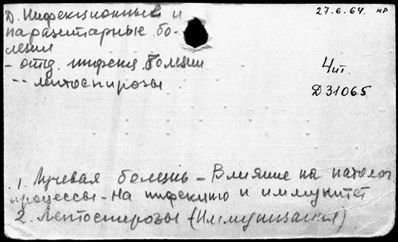 Д. Инфекционные и
паразитарные бо-
лезни
- отд. инфекц. болезни
-- лептоспирозы
27.6.64. нр
4 чит.
Д31065
1. Лучевая болезнь - Влияние на патолог
процессы - На инфекцию и иммунитет
2. Лептоспирозы (Иммунизация)